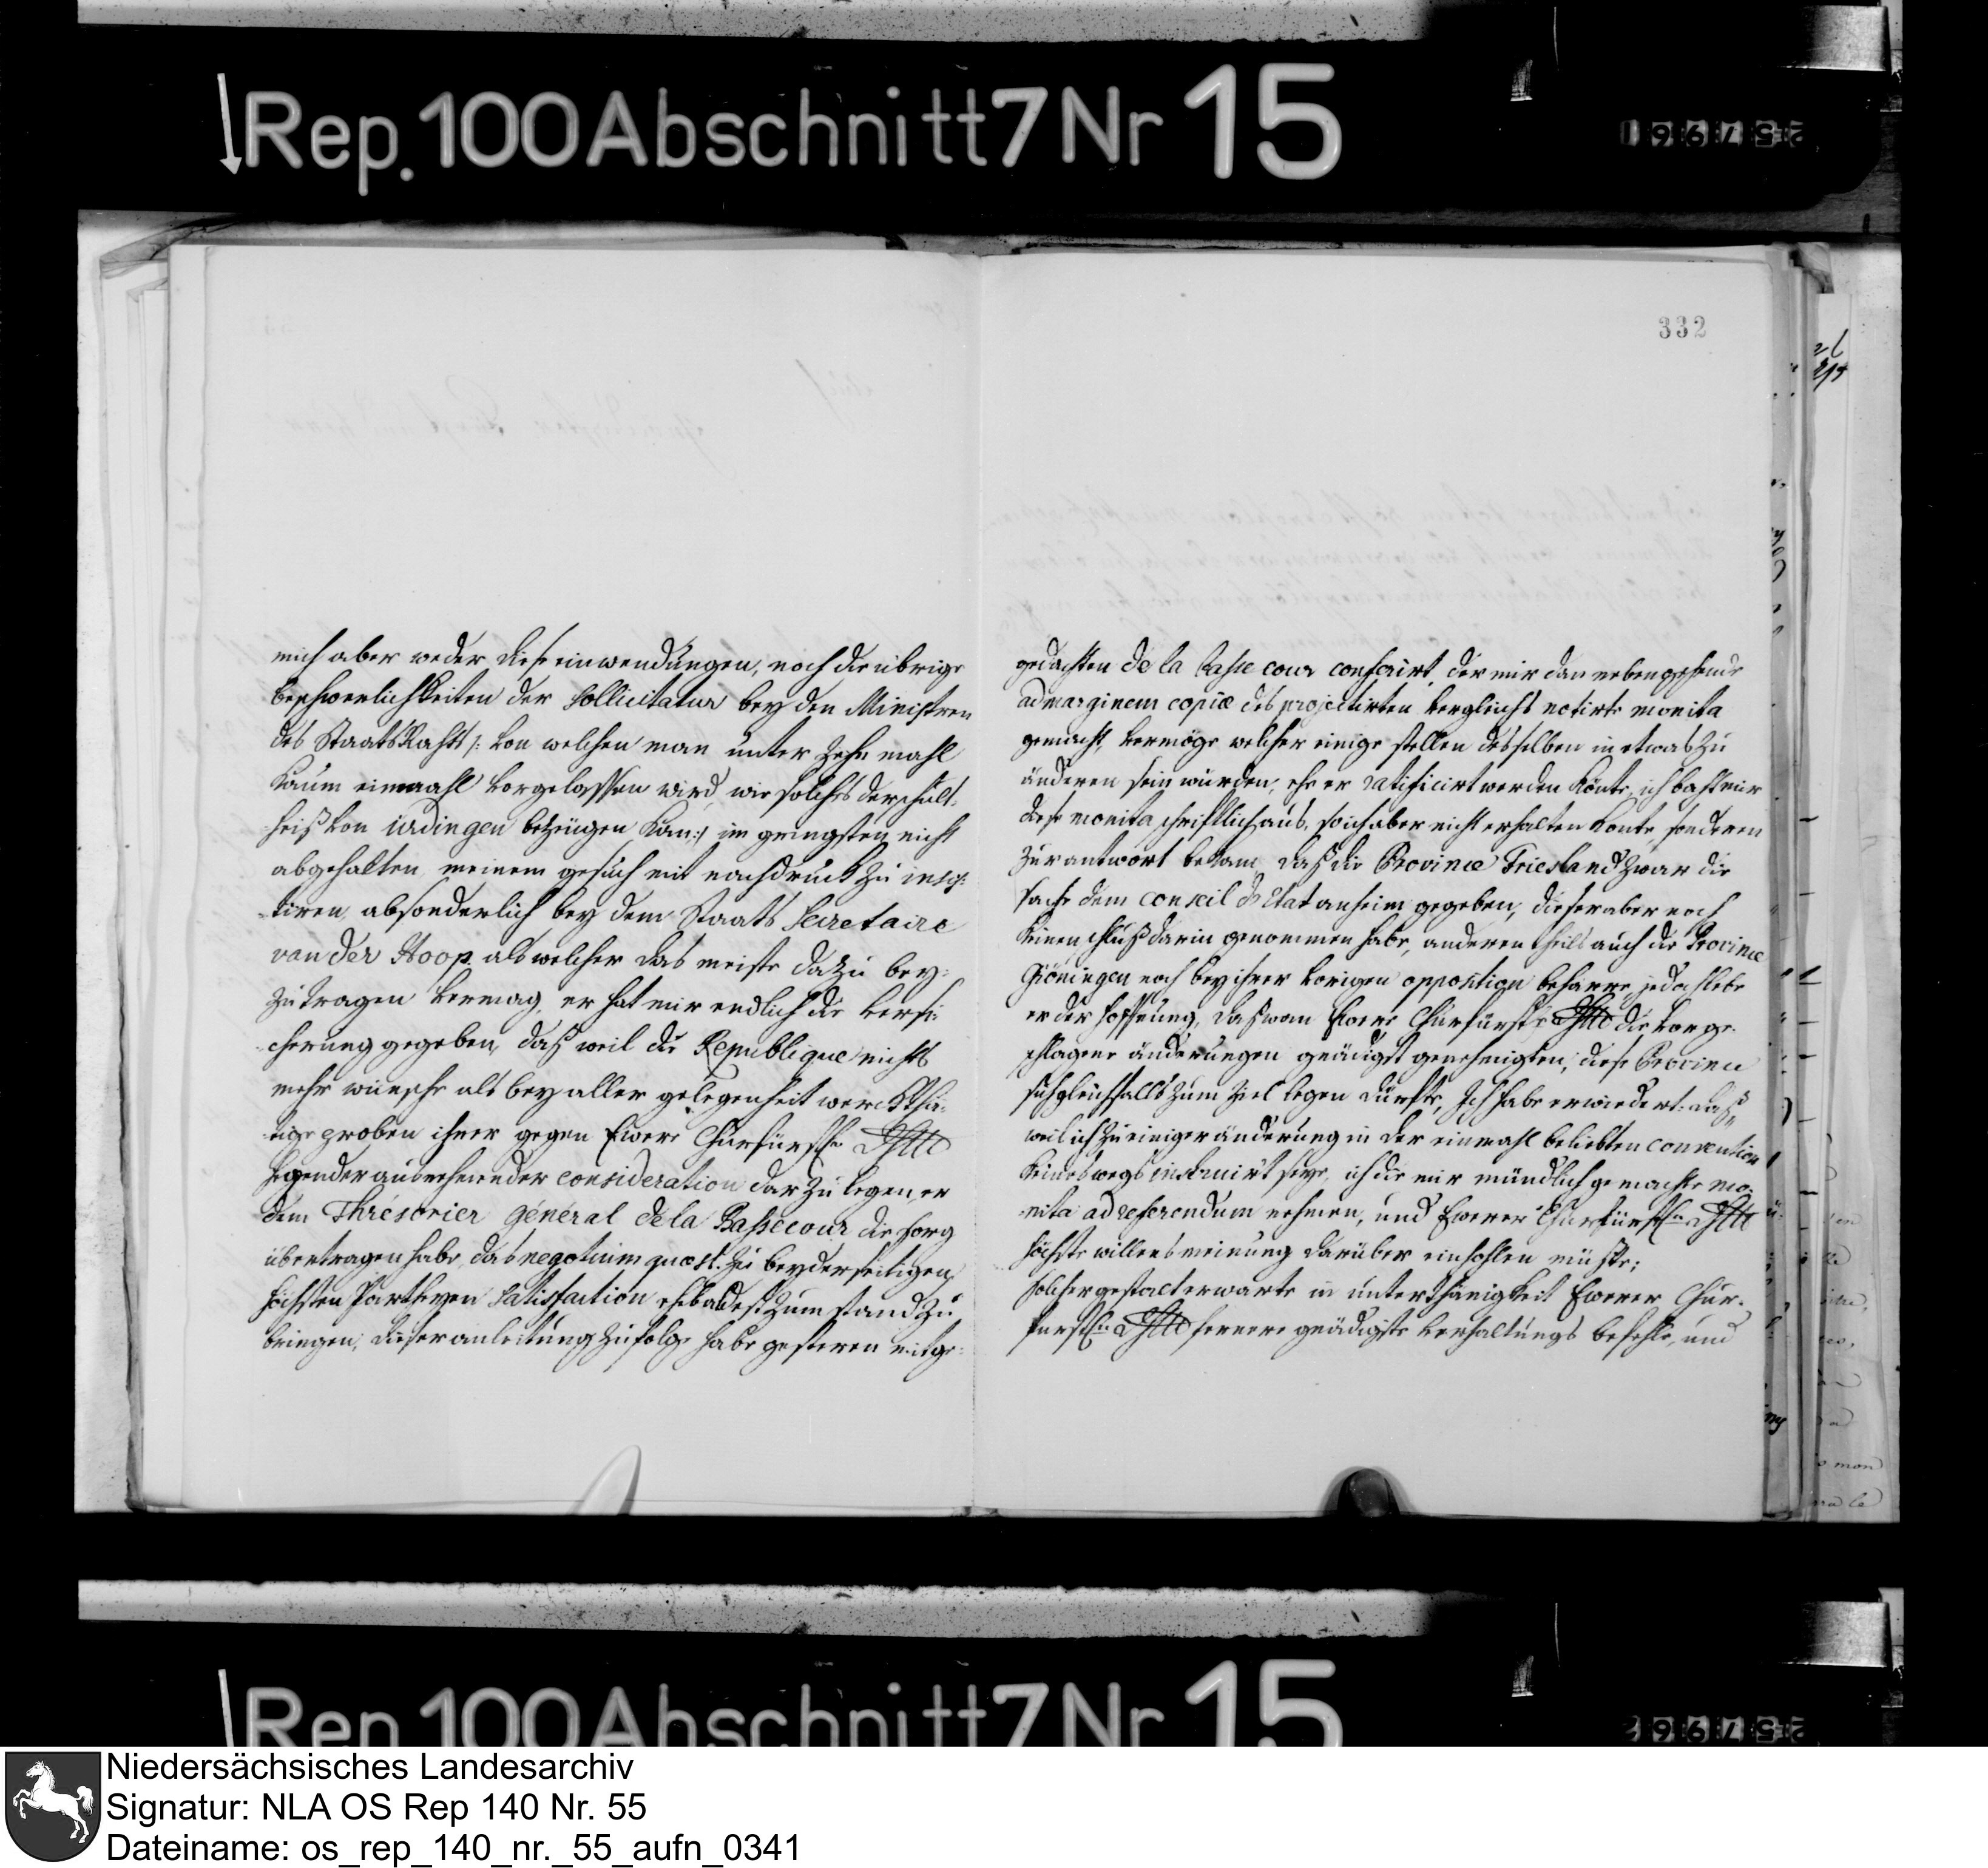 Rep. 100 Abschnitt 7 Nr 15
332
mich aber weder diese einwendungen, noch die übrige
beschwerlichkeiten der Sollicitatur bey den Ministren
des Staats Rahts /: von welchen man unter zehn mahl
kaum einmahl vorgelassen wird, wie solches der schült-
heiß von ürdingen bezeügen kan :/ im geringsten nicht
abgehalten meinem gesuch mit nachdruck zu insis-
tiren, absonderlich bey dem Staats Secretaire
van der Hoop als welcher das meiste dazu bey-
zutragen vermag, er hat mir endlich die versi-
cherung gegeben, daß weil die Republique nichts
mehr wünsche als bey aller gelegenheit werckthä-
tige proben ihrer gegen Ewere Churfürstl:
hegender ausnehmender consideration darzulegen, er
dem Thrésorier Général de la Bassecour die sorg
übertragen habe, das negotium quæst. zu beyderseitigen
höchsten Partheyen Satisfaction ehebaldest zum stand zu
bringen, dieser anleitung zufolge habe gesteren mitge-
gedachten de la Basse cour conferirt, der mir dan nebengehende
ad marginem copiæ des projectirten vergleichs notirte monita
gemacht, vermöge welcher einige stellen desselben in etwas zu
änderen sein würden, ehe er ratificirt werden könte, ich baht mir
diese monita schriftlich aus, so ich aber nicht erhalten konte, sonderen
zur antwort bekam, daß die Province Friesland zwar die
sache dem conseil d'Etat anheim gegeben, dieser aber noch
keinen schluß darin genommen habe, anderen theils auch die Province
Gröningen noch bey ihrer vorigen opposition beharre, jedoch lebe
er der hoffnung, daß wan Ewere Churfürstl: die vorge-
schlagene änderungen gnädigst genehmigten, diese Province
sich gleichfalls zum ziel legen dürfte, Ich habe erwiedert: daß,
weil ich zu einiger änderung in der einmahl beliebten convention
keineswegs instruirt seye, ich die mir mündlich gemachte mo-
nita ad referendum nehmen, und Ewerer Churfürstl:
höchste willens meinung darüber einhohlen müste;
solchergestalt erwarte in unterthänigkeit Ewerer Chur-
fürstl: fernere gnädigste verhaltungs befehle, und
Rep. 100 Abschnitt 7 Nr 15
Niedersächsisches Landesarchiv
Signatur: NLA OS Rep 140 Nr. 55
Dateiname: os_rep_140_nr._55_aufn_0341